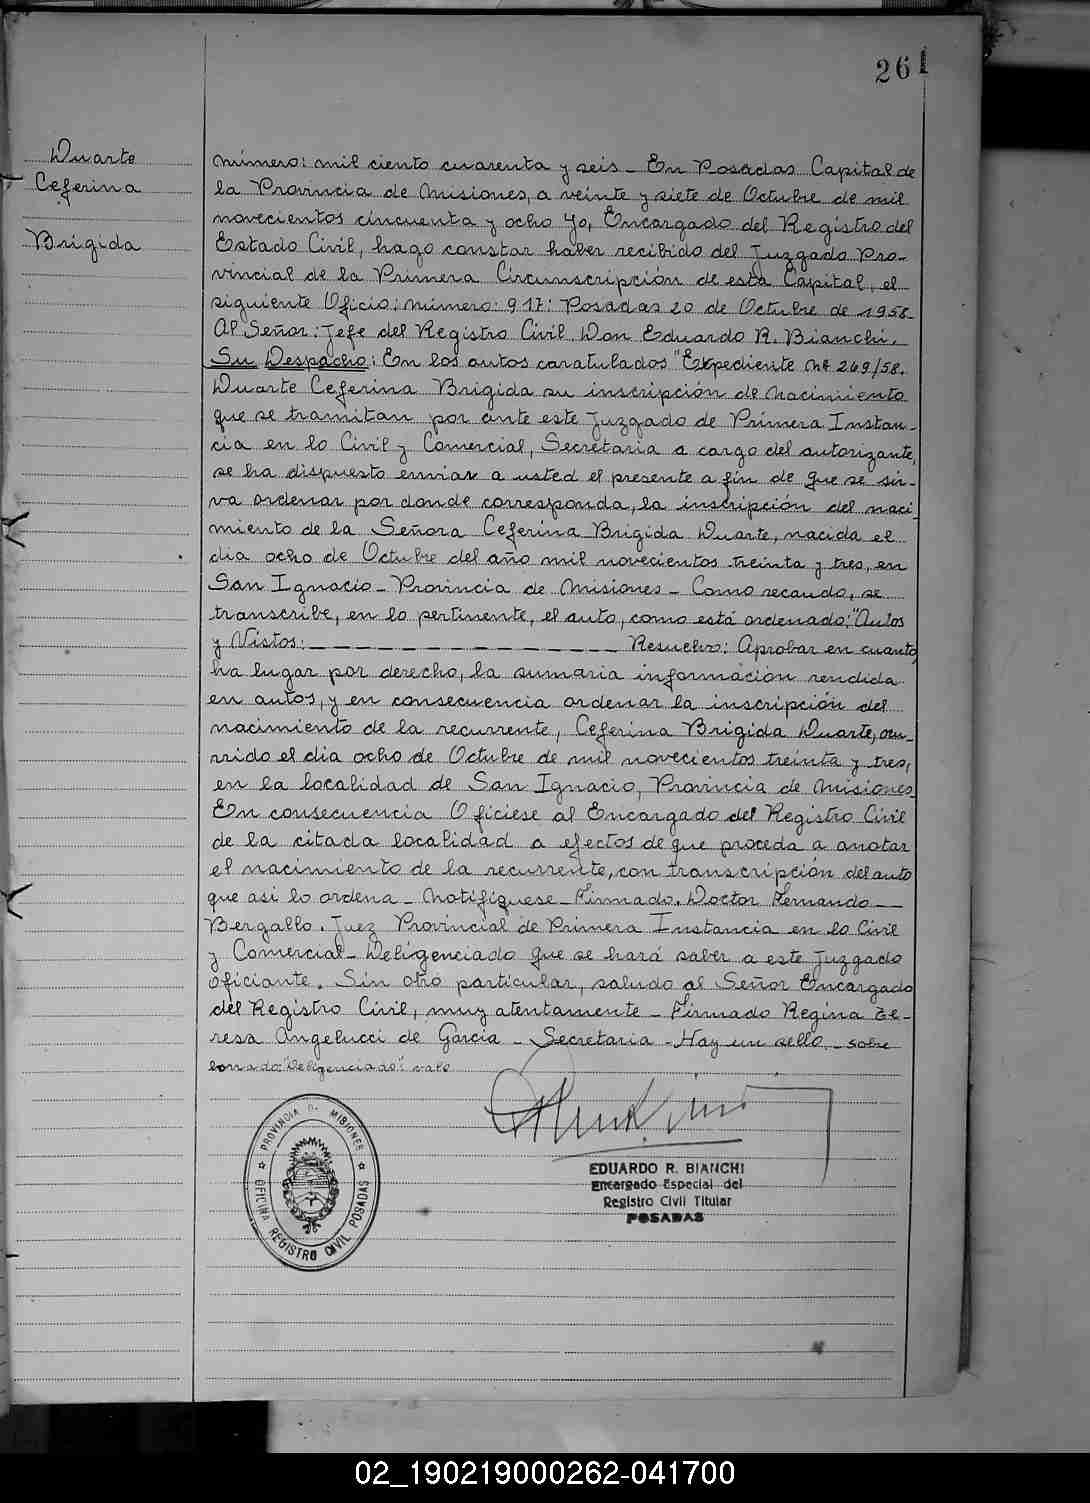 261
Duarte
Ceferina
Brigida
Número: mil ciento cuarenta y seis – En Posadas Capital de
la Provincia de Misiones, a veinte y siete de Octubre de mil
novecientos cincuenta y ocho yo, Encargado del Registro del
Estado Civil, hago constar haber recibido del Juzgado Pro-
vincial de la Primera Circunscripción de esta Capital, el
siguiente Oficio: número: 917: Posadas 20 de Octubre de 1958–
Al Señor: Jefe del Registro Civil Don Eduardo R. Bianchi.
Su Despacho: En los autos caratulados "Expediente Nº 269/58.
Duarte Ceferina Brigida su inscripción de Nacimiento
que se tramitan por ante este Juzgado de Primera Instan-
cia en lo Civil y Comercial, Secretaria a cargo del autorizante,
se ha dispuesto enviar a usted el presente a fin de que se sir-
va ordenar por donde corresponda, la inscripción del naci-
miento de la Señora Ceferina Brigida Duarte, nacida el
dia ocho de Octubre del año mil novecientos treinta y tres, en
San Ignacio – Provincia de Misiones – Como recaudo, se
transcribe, en lo pertinente, el auto, como está ordenado: "Autos
y Vistos: – – – – – – – – – – – – – – – Resuelvo: Aprobar en cuanto
ha lugar por derecho, la sumaria información rendida
en autos, y en consecuencia ordenar la inscripción del
nacimiento de la recurrente, Ceferina Brigida Duarte, ocu-
rrido el dia ocho de Octubre de mil novecientos treinta y tres,
en la localidad de San Ignacio, Provincia de Misiones.
En consecuencia Oficiese al Encargado del Registro Civil
de la citada localidad a efectos de que proceda a anotar
el nacimiento de la recurrente, con transcripción del auto
que asi lo ordena – Notifíquese – Firmado. Doctor Fernando –
Bergallo. Juez Provincial de Primera Instancia en lo Civil
y Comercial – Deligenciado que se hará saber a este Juzgado
oficiante. Sin otro particular, saludo al Señor Encargado
del Registro Civil, muy atentamente – Firmado Regina Te-
resa Angelucci de Garcia – Secretaria – Hay un sello. – sobre
borrado: "Deligenciado": vale
PROVINCIA DE MISIONES
OFICINA REGISTRO CIVIL POSADAS
EDUARDO R. BIANCHI
Encargado Especial del
Registro Civil Titular
POSADAS
02_190219000262-041700